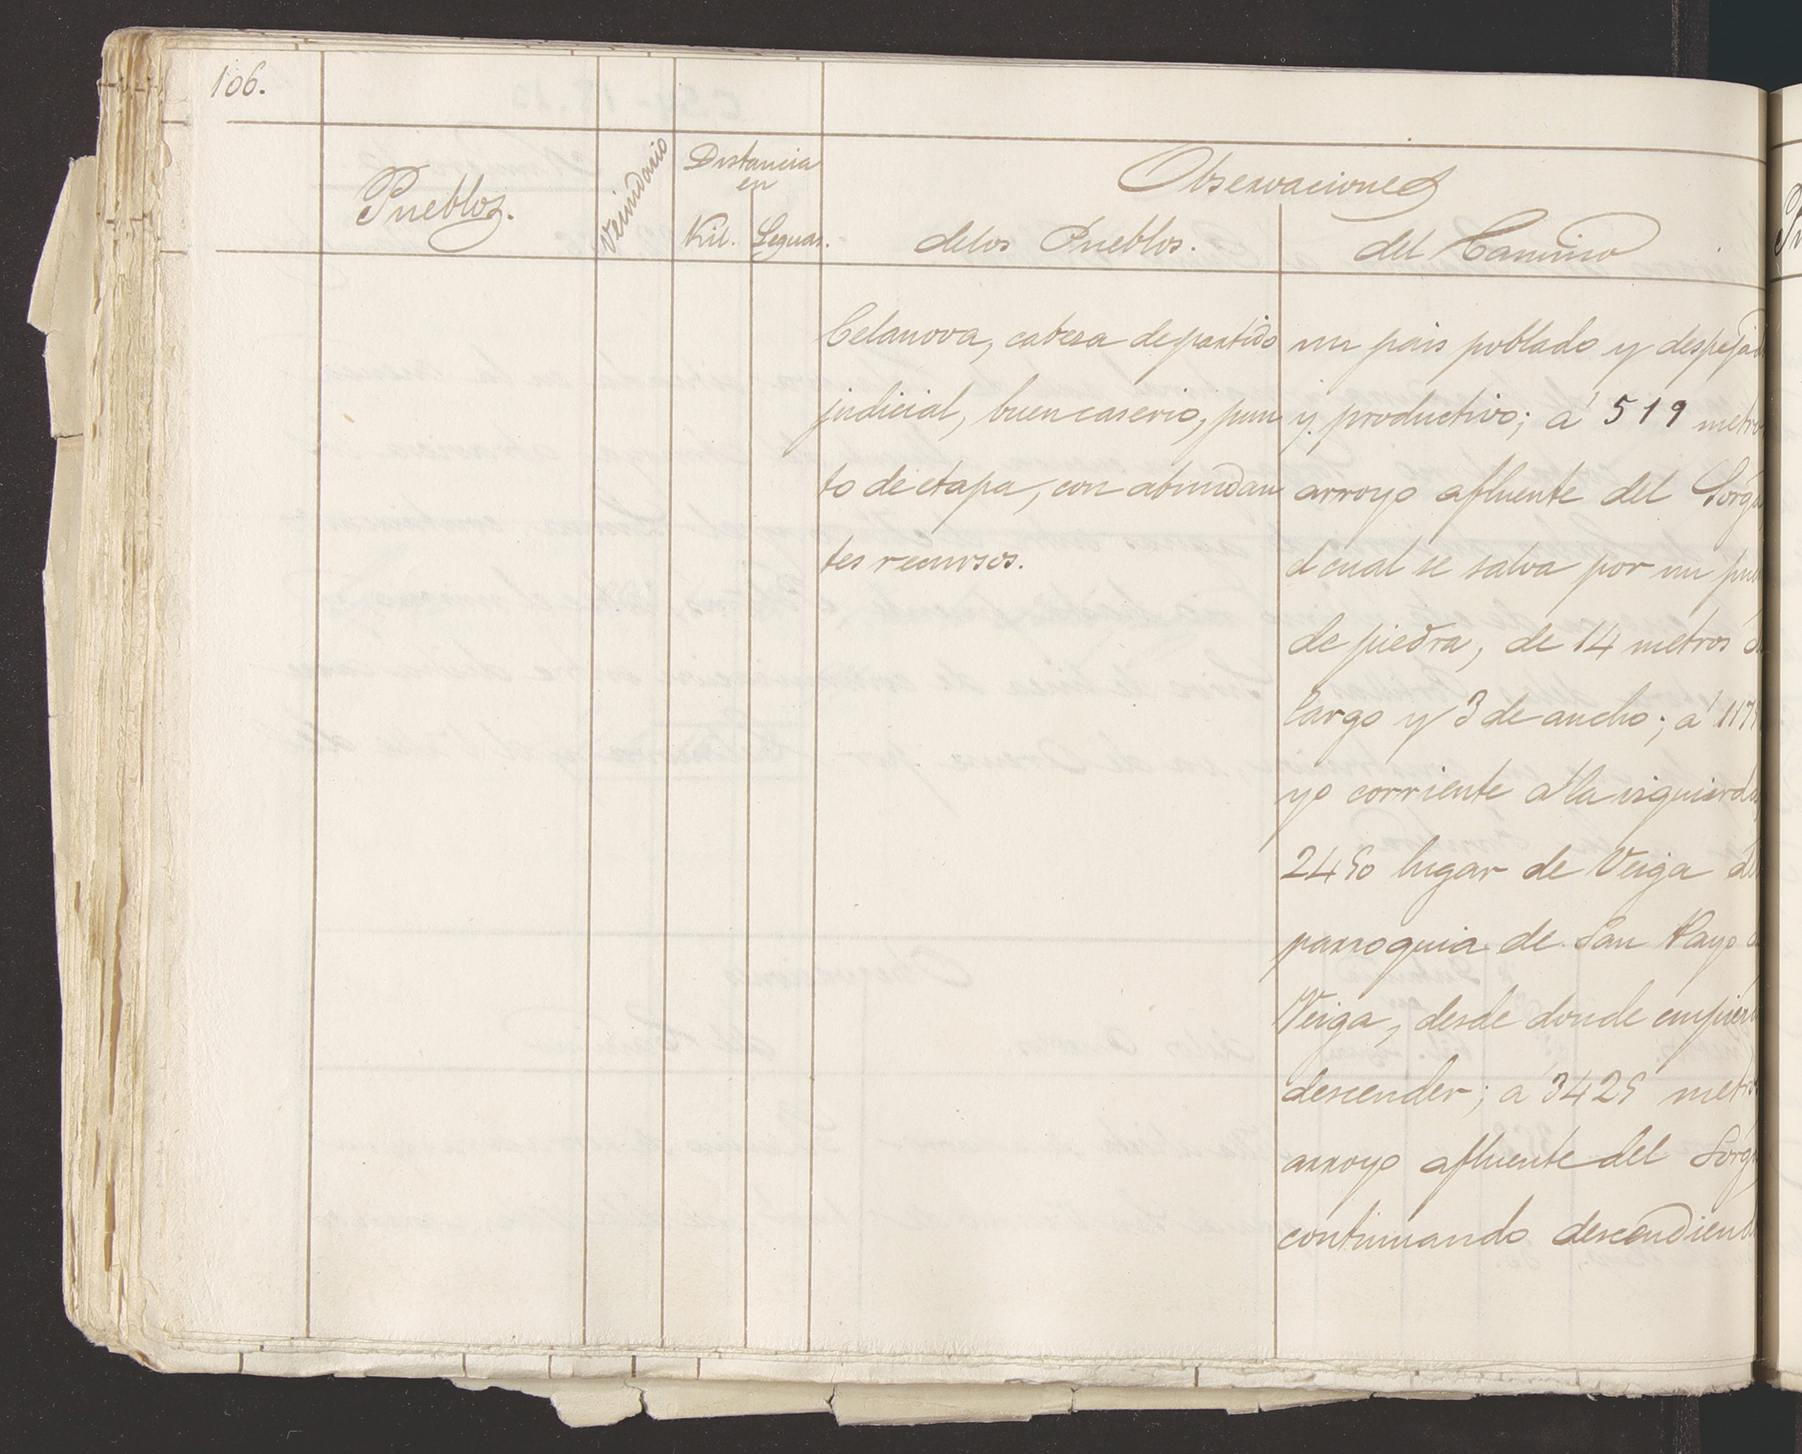 106.
Pueblos.
Vecindario
Distancia
en
Kil. Leguas.
Observaciones
delos Pueblos.
del Camino
Celanova, cabeza de partido
judicial, buen caserio, pun
to de etapa, con abundan
tes recursos.
un pais poblado y despeja
y productivo; á 519 metro
arroyo afluente del Sorga
el cual se salva por un pue
de piedra, de 14 metros d
largo y 3 de ancho; á 117
yo corriente á la izquierda
2450 lugar de Veiga d
parroquia de San Payo d
Veiga, desde donde empiez
descender; á 3425 metro
arroyo afluente del Sorga
continuando descendiend